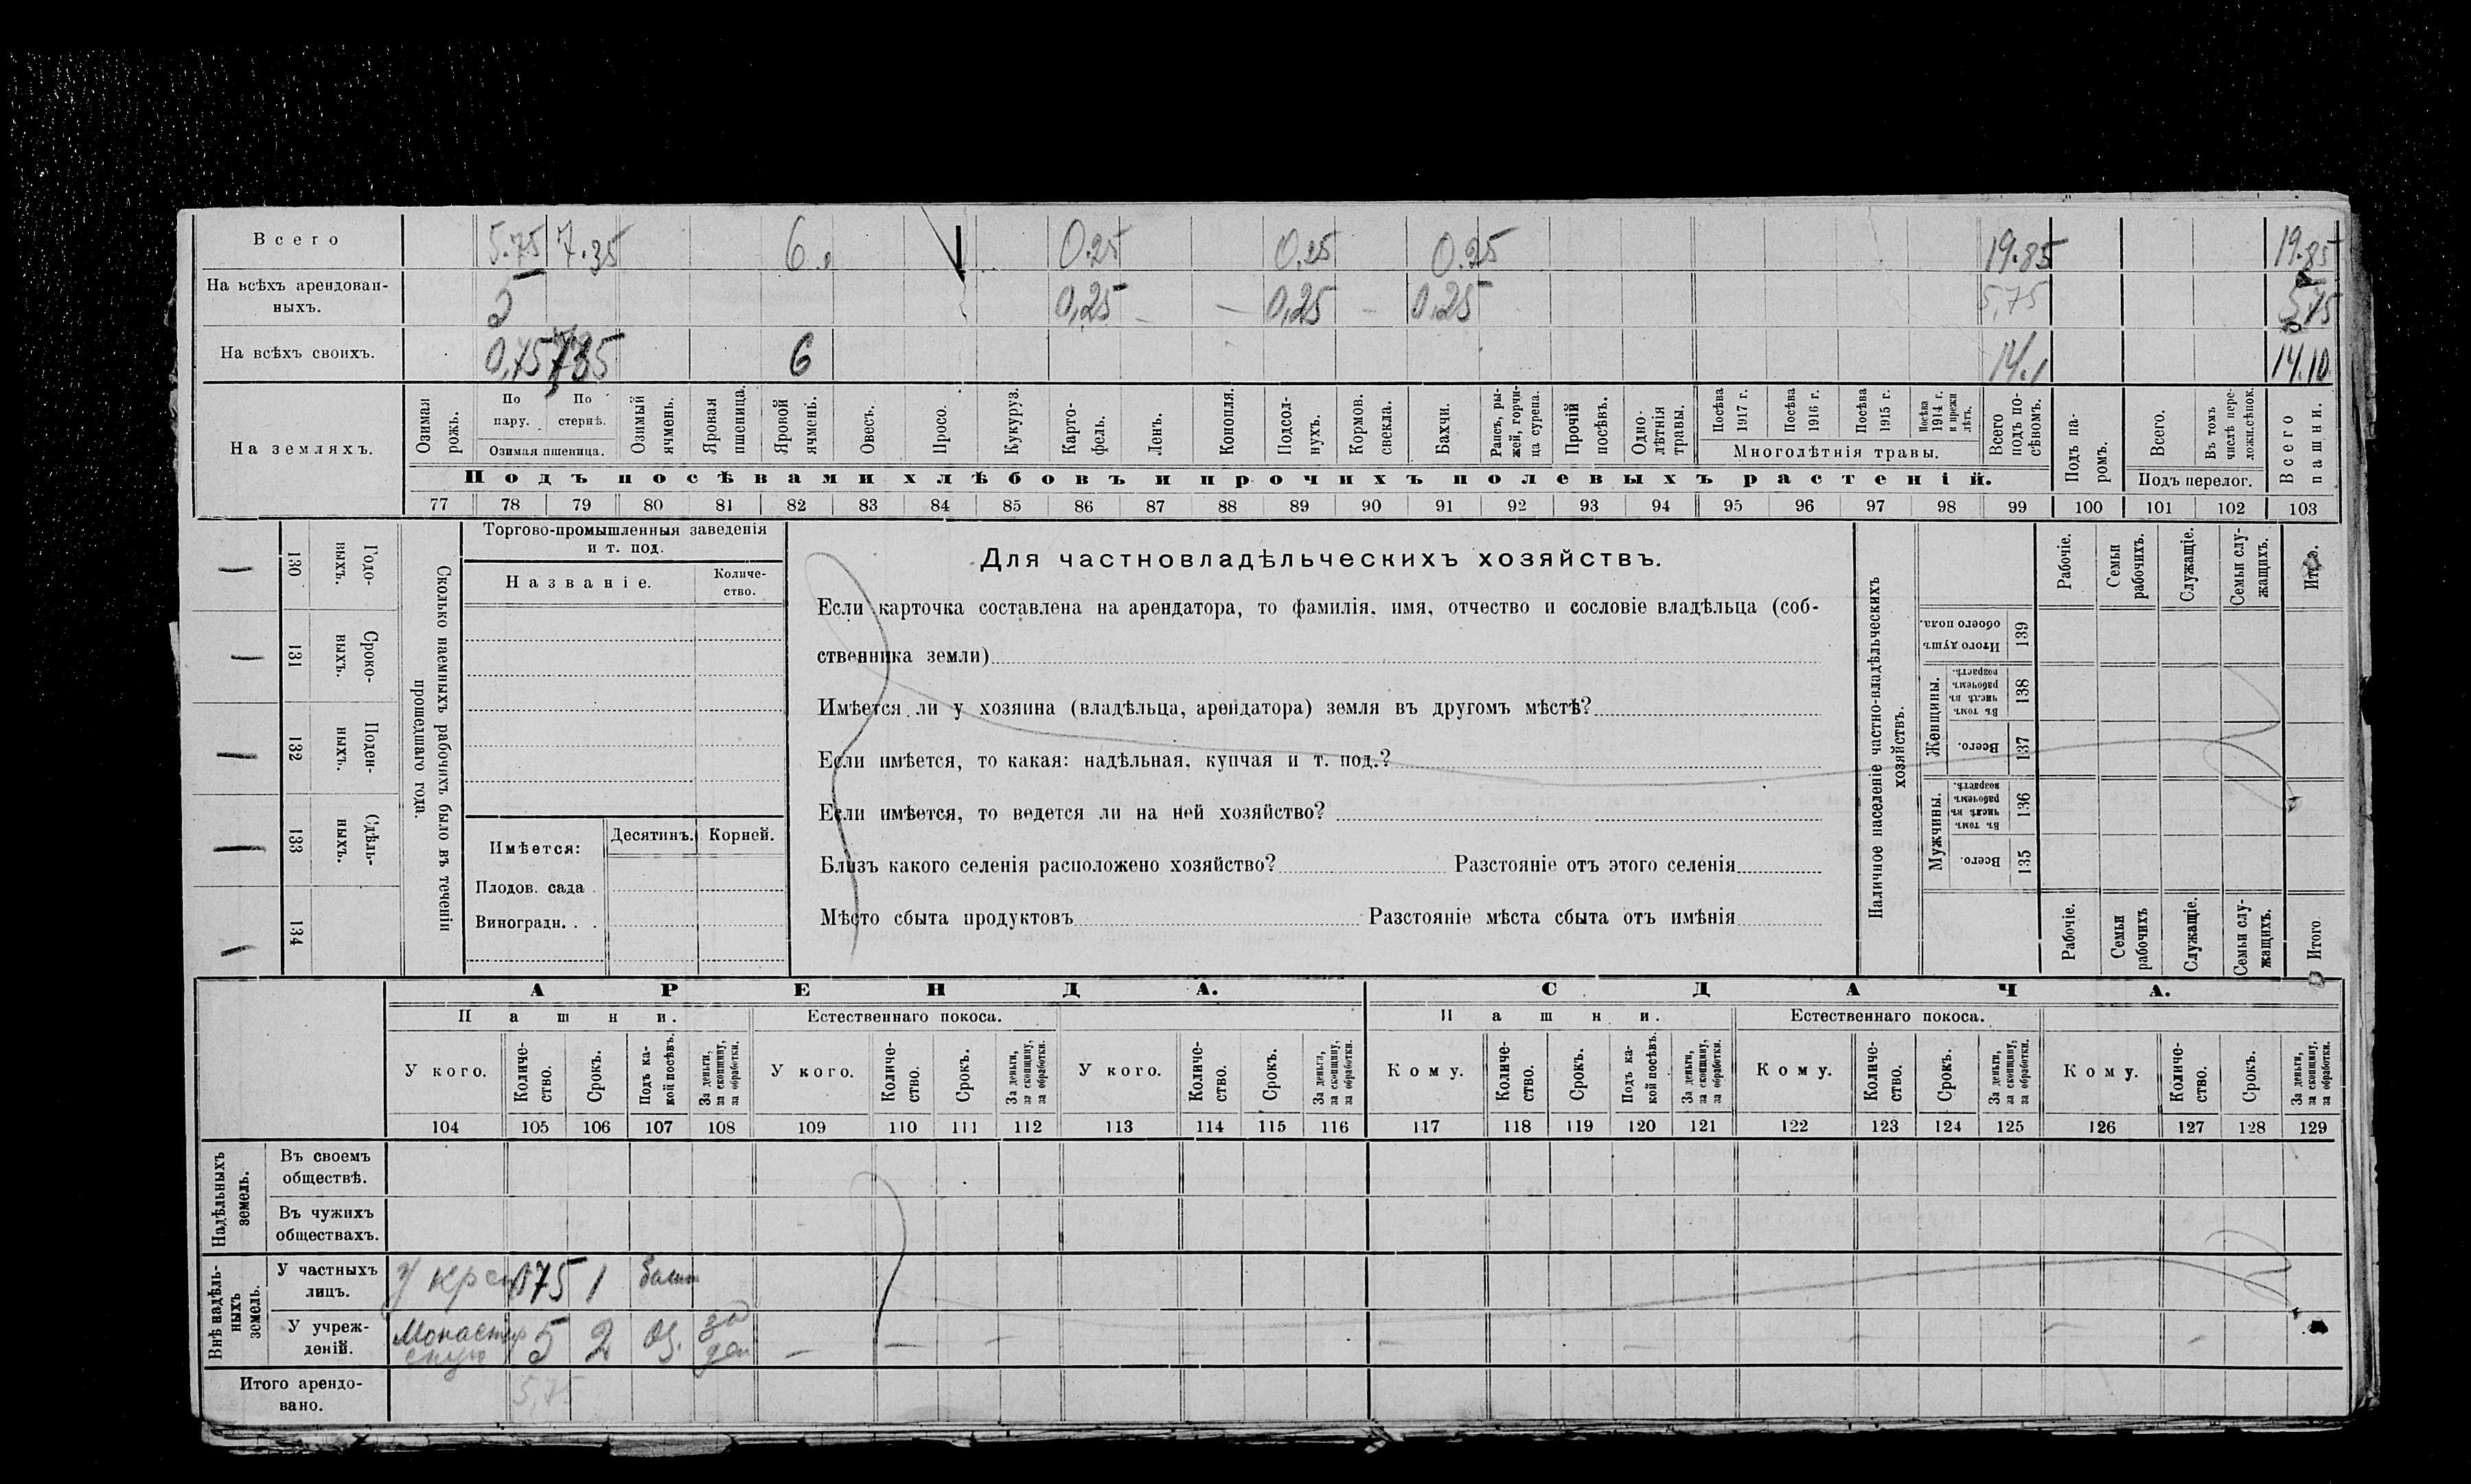 Всего 5.75 7.35 6. 0.25 0.25 0.25 19.85 19.85
На всѣхъ арендован-
ныхъ. 5 0,25 — — 0,25 — 0.25 5,75 5,75
На всѣхъ своихъ. 0,75 7,35 6 14.1 14.10
На земляхъ.
Озимая рожь.
По пару.
По стернѣ.
Озимая пшеница.
Озимый ячмень.
Яровая пшеница.
Яровой ячмень.
Овесъ.
Просо.
Кукуруз.
Карто-
фель.
Ленъ.
Конопля.
Подсол-
нухъ.
Кормов. свекла.
Бахчи.
Рапсъ, ры-
жей, горчи-
ца сурепа.
Прочій посѣвъ.
Одно-
лѣтнія травы.
Посѣва 1917 г.
Посѣва 1916 г.
Посѣва 1915 г.
Посѣва 1914 г. и прежн лѣтъ.
Многолѣтнія травы.
Всего подъ по-
сѣвомъ.
Подъ па-
ромъ.
Всего.
Въ томъ числѣ пере-
ложн. сѣнок.
Подъ перелог.
Всего пашни.
Подъ посѣвами хлѣбовъ и прочихъ полевыхъ растеній.
77 78 79 80 81 82 83 84 85 86 87 88 89 90 91 92 93 94 95 96 97 98 99 100 101 102 103
— 130 Годо-
ныхъ.
— 131 Сроко-
выхъ.
— 132 Поден-
ныхъ.
— 133 Сдѣль-
ныхъ.
— 134
Сколько наемныхъ рабочихъ было въ теченіи
прошедшаго года.
Торгово-промышленныя заведенія
и т. под.
Названіе.
Количе-
ство.
Имѣется:
Десятинъ.
Корней.
Плодов. сада .
Виноградн. . .
Для частновладѣльческихъ хозяйствъ.
Если карточка составлена на арендатора, то фамилія, имя, отчество и сословіе владѣльца (соб-
ственника земли)
Имѣется ли у хозяина (владѣльца, арендатора) земля въ другомъ мѣстѣ?
Если имѣется, то какая: надѣльная, купчая и т. под.?
Если имѣется, то ведется ли на ней хозяйство?
Близъ какого селенія расположено хозяйство? Разстояніе отъ этого селенія
Мѣсто сбыта продуктовъ Разстояніе мѣста сбыта отъ имѣнія
Наличное населеніе частно-владѣльческихъ
хозяйствъ.
Рабочіе.
Семьи рабочихъ.
Служащіе.
Семьи слу-
жащихъ.
Итого душъ обоего пола. 139
Женщины.
Въ томъ числѣ въ рабочемъ возрастѣ. 138
Всего. 137
Мужчины.
Въ томъ числѣ въ рабочемъ возрастѣ. 136
Всего. 135
Рабочіе.
Семьи рабочихъ
Служащіе.
Семьи слу-
жащихъ.
Итого
АРЕНДА. СДАЧА.
Пашни. Естественнаго покоса. Пашни. Естественнаго покоса.
У кого.
Количе-
ство.
Срокъ.
Подъ ка-
кой посѣвъ.
За деньги,
за скопщину,
за обработки.
У кого.
Количе-
ство.
Срокъ.
За деньги,
за скопщину,
за обработки.
У кого.
Количе-
ство.
Срокъ.
За деньги,
за скопщину,
за обработки.
Кому.
Количе-
ство.
Срокъ.
Подъ ка-
кой посѣвъ.
За деньги,
за скопщину,
за обработки.
Кому.
Количе-
ство.
Срокъ.
За деньги,
за скопщину,
за обработки.
Кому.
Количе-
ство.
Срокъ.
За деньги,
за скопщину,
за обработки.
104 105 106 107 108 109 110 111 112 113 114 115 116 117 118 119 120 121 122 123 124 125 126 127 128 129
Надѣльныхъ
земель.
Въ своемъ
обществѣ.
Въ чужихъ
обществахъ.
Внѣ надѣль-
ныхъ
земель.
У частныхъ
лицъ.
У 75 1
У учреж-
деній.
5 2 Оз. за
ден
Итого арендо-
вано. 5,75